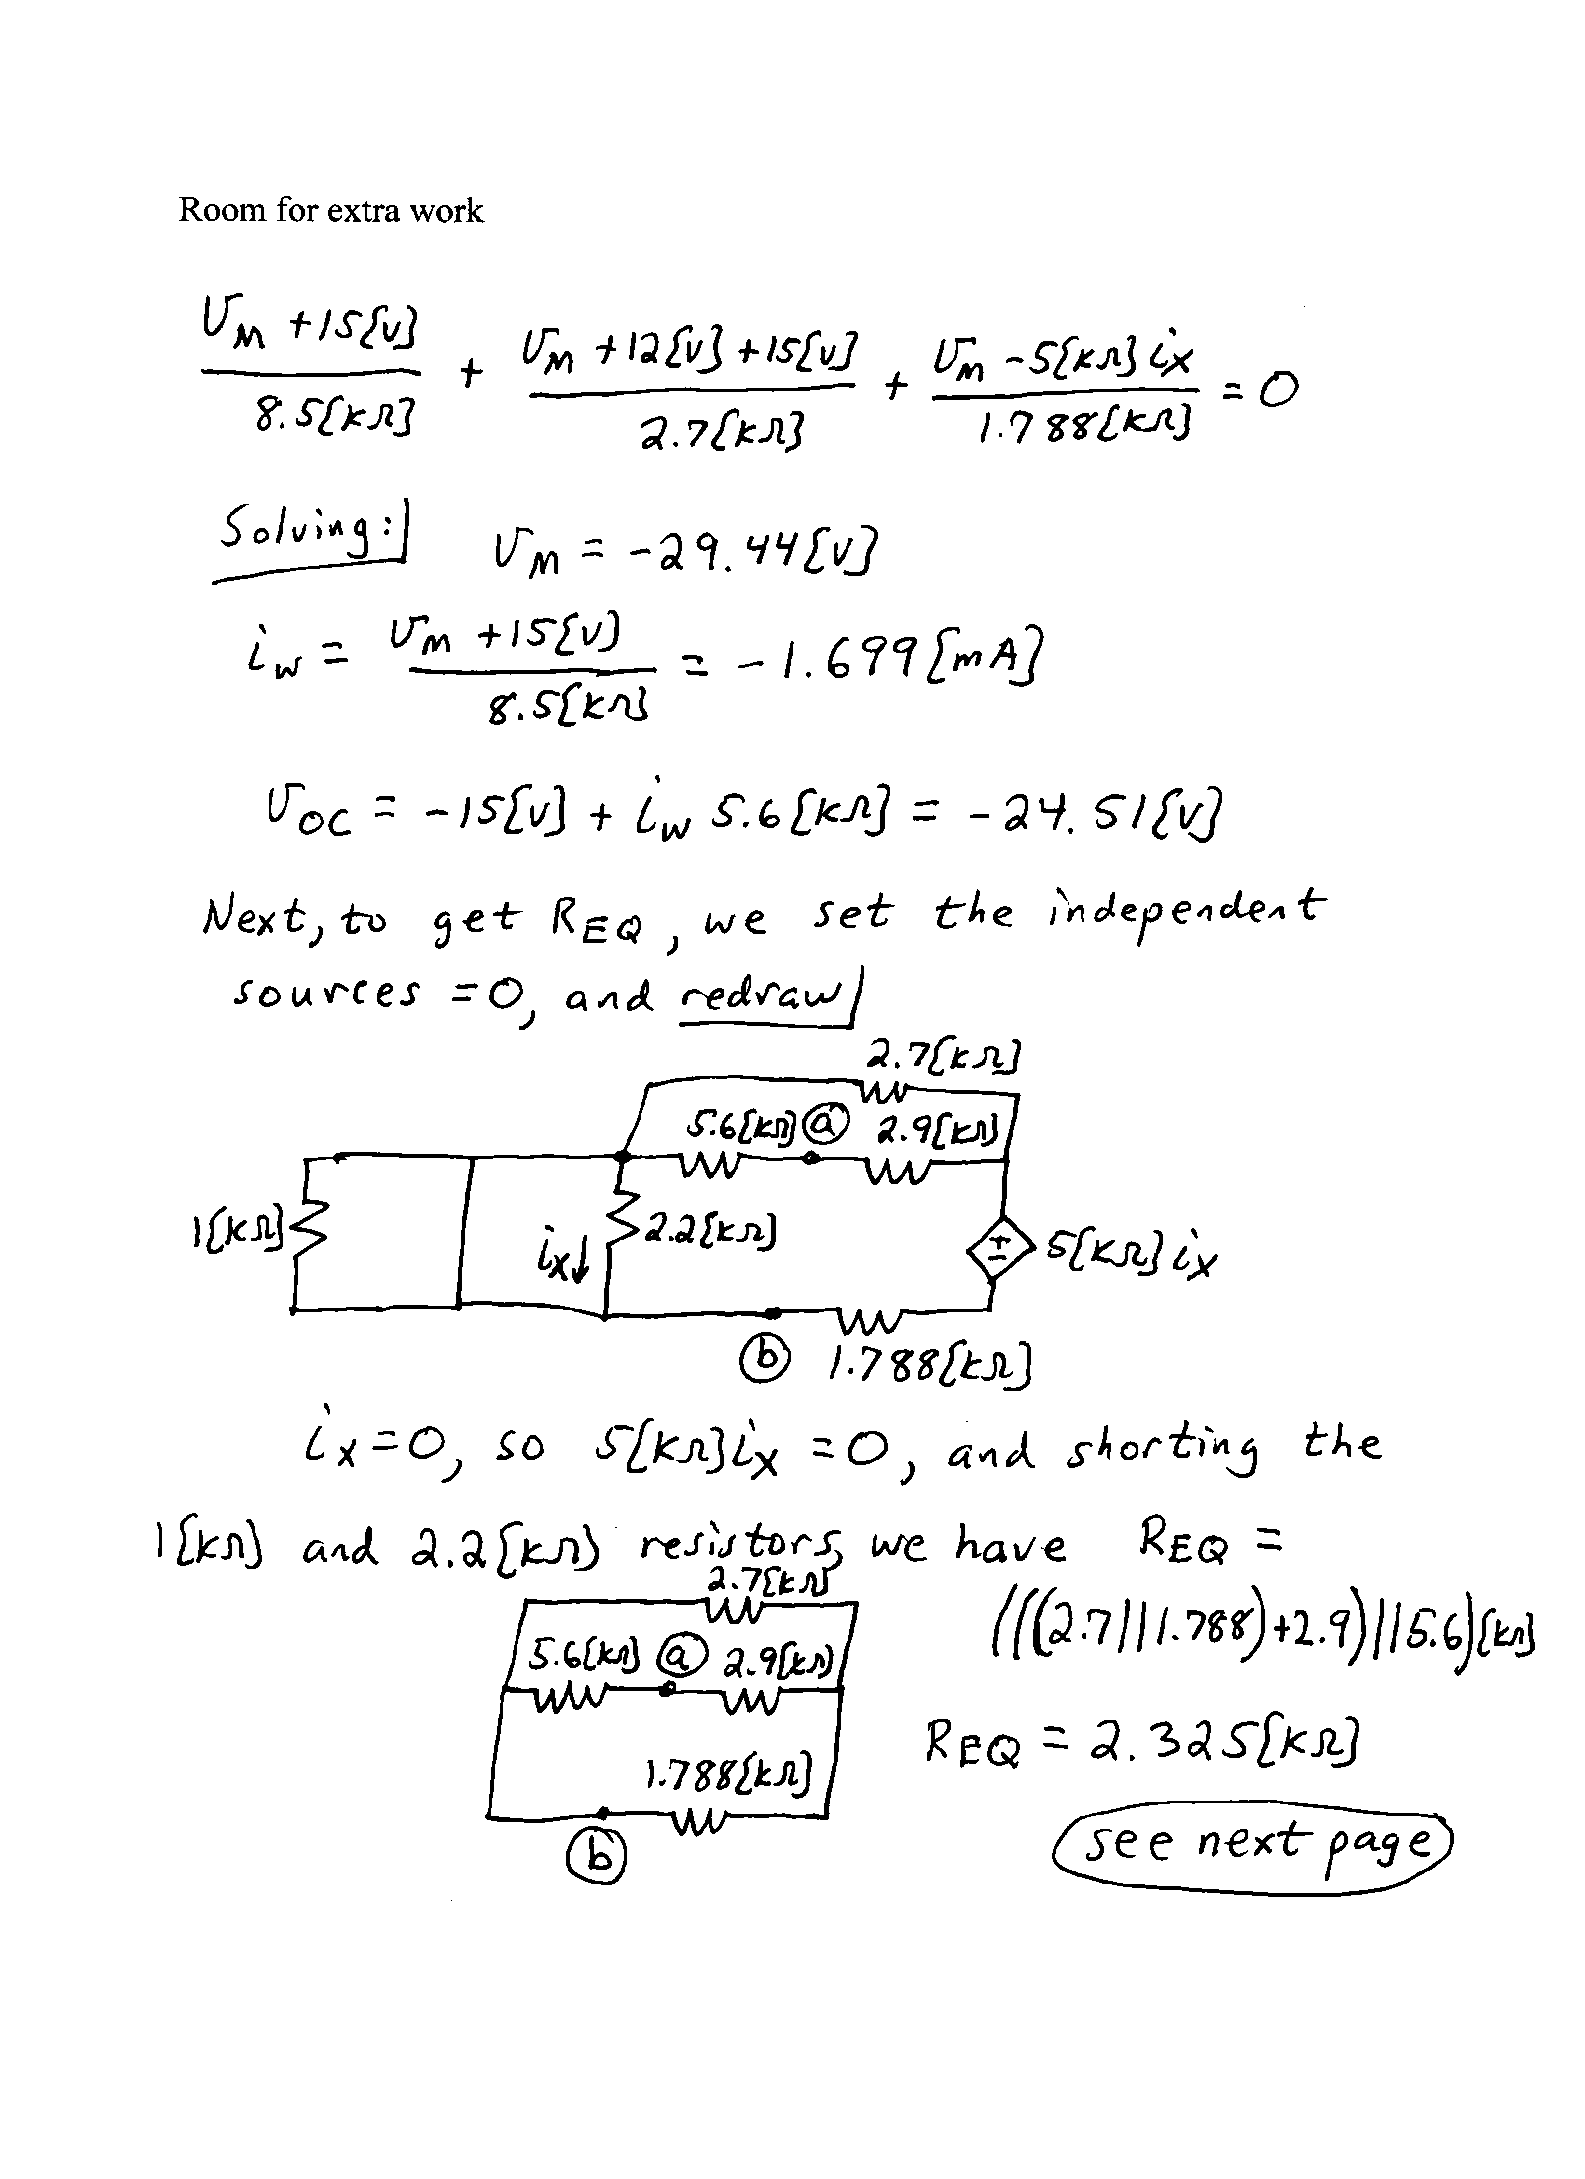 Room for extra work
(v_M + 15[V]) / 8.5[kΩ] + (v_M + 12[V] + 15[V]) / 2.7[kΩ] + (v_M - 5[kΩ] i_X) / 1.788[kΩ] = 0
Solving: v_M = -29.44[V]
i_W = (v_M + 15[V]) / 8.5[kΩ] = -1.699[mA]
v_OC = -15[V] + i_W 5.6[kΩ] = -24.51[V]
Next, to get R_EQ, we set the independent
sources = 0, and redraw
2.7[kΩ]
5.6[kΩ] a 2.9[kΩ]
1[kΩ] i_X ↓ 2.2[kΩ] + - 5[kΩ] i_X
b 1.788[kΩ]
i_X = 0, so 5[kΩ] i_X = 0, and shorting the
1[kΩ] and 2.2[kΩ] resistors, we have R_EQ =
2.7[kΩ]
(((2.7||1.788)+2.9)||5.6)[kΩ]
5.6[kΩ] a 2.9[kΩ]
R_EQ = 2.325[kΩ]
1.788[kΩ]
b
see next page